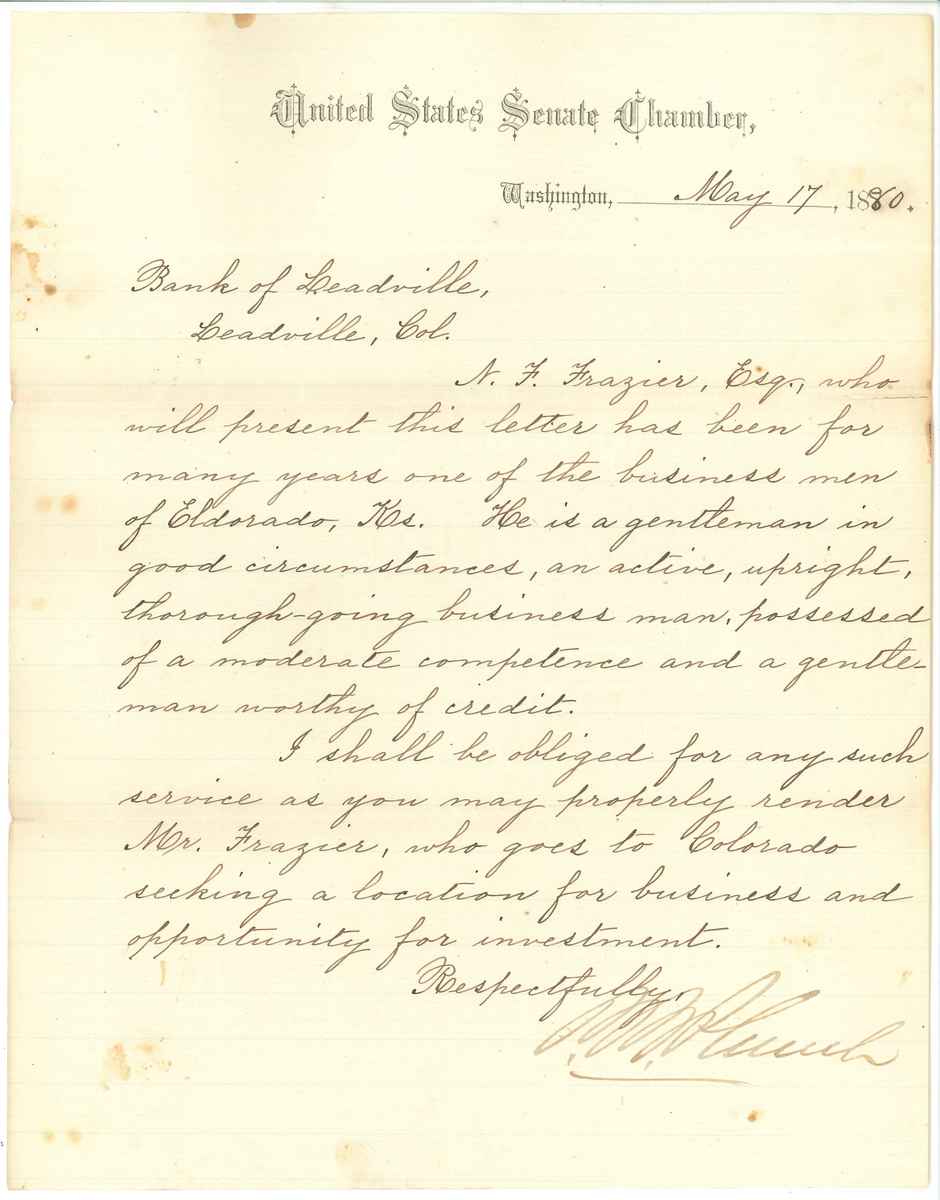 United States Senate Chamber,
Washington, May 17, 1880.
Bank of Leadville,
Leadville, Col.
N. F. Frazier, Esq., who
will present this letter has been for
many years one of the business men
of Eldorado, Ks. He is a gentleman in
good circumstances, an active, upright,
thorough-going business man, possessed
of a moderate competence and a gentle-
man worthy of credit.
I shall be obliged for any such
service as you may properly render
Mr. Frazier, who goes to Colorado
seeking a location for business and
opportunity for investment.
Respectfully,
Plumb